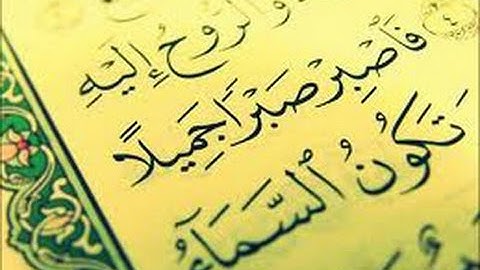 وَالرُّوحُ إِلَيْهِ
٤
فَاصْبِرْ صَبْرًا جَمِيلًا
تَكُونُ السَّمَاءُ